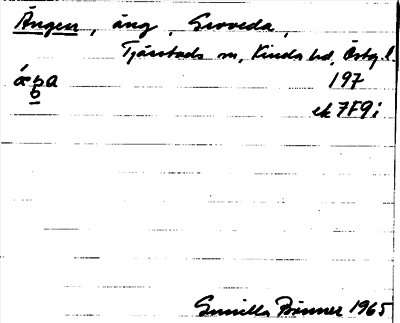 Ängen, äng, Sroveda,
Tjärstads sn, Kinda hd, Östg. l.
197
ek 7F9i
Gunilla Bonner 1965